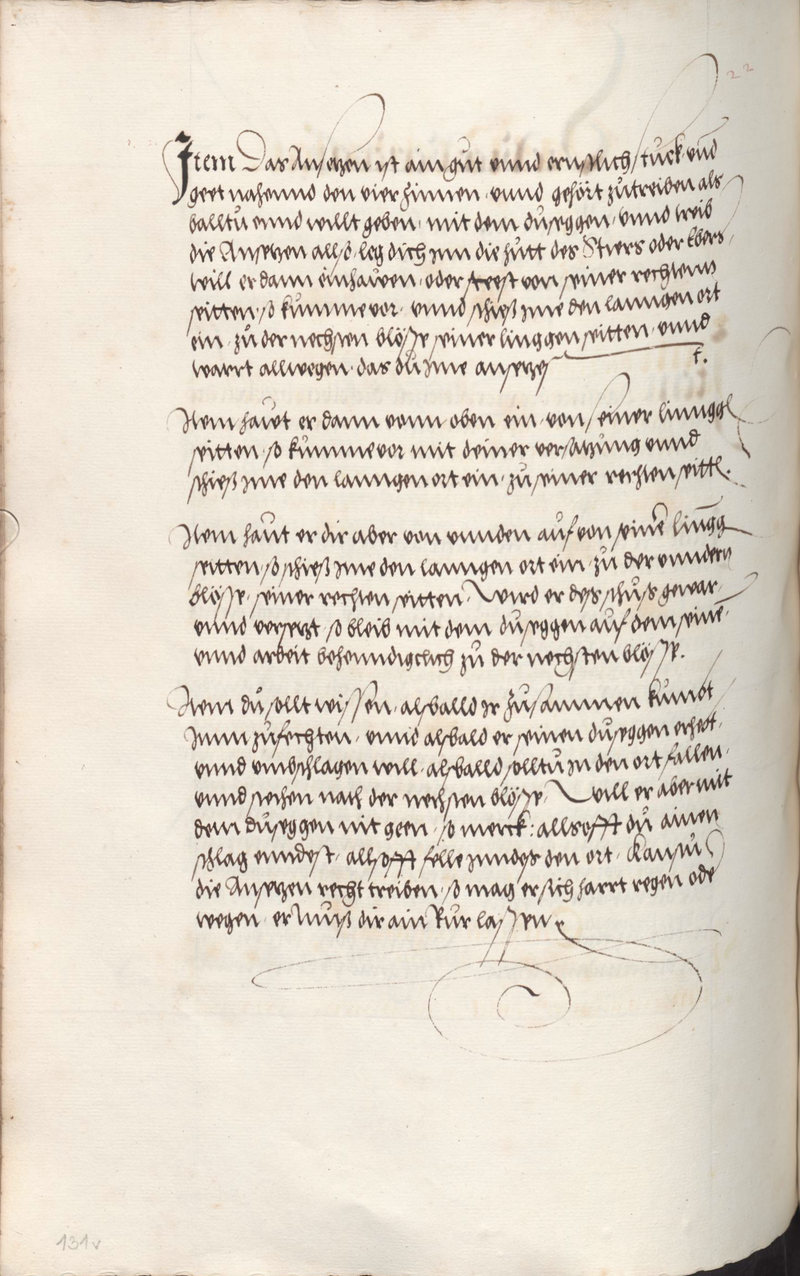 22
Item Das Ansetzen ist ain gut unnd ernstlich stuck und
geet nahennd den vier hinnen, unnd gehört zutreiben als
balltu ennd willt geben, mit dem duseggen, unnd treib
die Ansetzen allso, leg dich jnn die hutt des Stiers oder Ebers,
will er dann einhauen, oder von seiner rechtenn
seitten, so kumme vor, unnd schieß jme den lanngen ort
ein, zu der nechsten blösse seiner linggen seitten, unnd
warrt allwegen, das du jme ansetzest
Item hawt er dann vonn oben ein, von seiner linngg
seitten, so kumme vor mit deiner versatzung unnd
schieß jme den lanngen ort ein, zu seiner rechten seitt.
Item haut er dir aber von unnden auf von seinē lingg
seitten, so schieß jme den lanngen ort ein, zu der unndern
blösse, seiner rechten seitten, Wird er des schuss gewar,
unnd versetzt, so bleib mit dem duseggen auf dem seinē,
unnd arbeit behenndigclich zu der nechsten blösse.
Item du sollt wissen, alsballd jr zusammen kumbt
jnnn zufechten, unnd alsbald er seinen duseggen erhept,
unnd umbschlagen will, alsballd solltu jn den ort fallen,
unnd stechen nach der nechsten blösse, Will er aber mit
dem duseggen nit geen, so merck: alls offt du ainen
schlag enndest, alls offt felle jnndes den ort, Kanstu
die Ansetzen recht treiben, so mag er sich hartt regen ode
wegen, er muß dir ain Rur lassen
131v